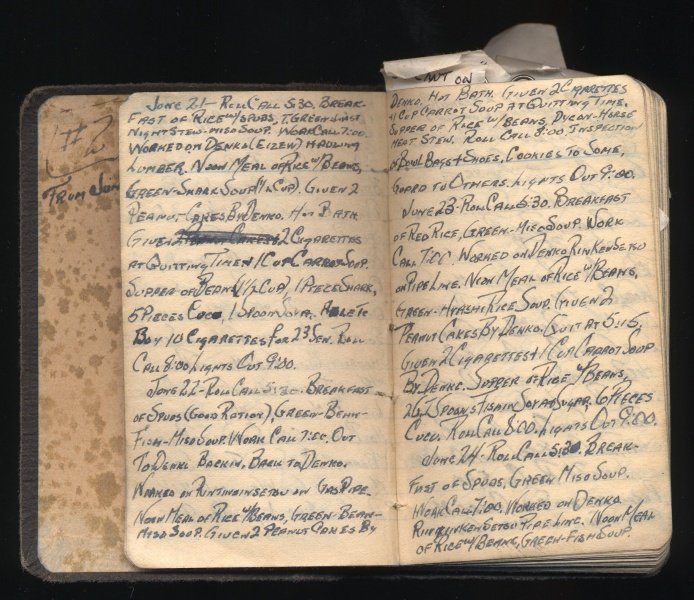 #2
From Jun
June 21 - Roll Call 5:30. Break-
fast of Rice w/ Spuds, T. Green-Last
Night Stew-Miso Soup. Work Call 7:00
Worked on Denko (Eizew) Hauling
Lumber. Noon Meal of Rice w/ Beans,
Green-Shark Soup (1/2 Cup). Given 2
Peanut Cakes By Denko. Hot Bath
Given 2 Cigarettes
at Quitting Time + 1 Cup Carrot Soup.
Supper of Beans (1/2 Cup), 1 Piece Shark,
5 Pieces Cucu, 1 Spoon Soya. Able to
Buy 10 Cigarettes for 23 Sen. Roll
Call 8:00 Lights Out 9:00.
June 22 - Roll Call 5:30. Breakfast
of Spuds (Good Ration), Green-Bean-
Fish-Miso Soup. Work Call 7:00. Out
To Denko Back in. Back to Denko.
Worked on on Gas Pipe.
Noon Meal of Rice w/ Beans, Green-Bean-
Miso Soup. Given 2 Peanut Cakes By
ON
Denko. Hot Bath. Given 2 Cigarettes
+ 1 Cup Carrot Soup at Quitting Time.
Supper of Rice w/ Beans, Dycon-Horse
Meat Stew. Roll Call 8:00. Inspection
of Bowl Bags + Shoes. Cookies to Some,
Guard to Others. Lights Out 9:00.
June 23 - Roll Call 5:30. Breakfast
of Red Rice, Green-Miso Soup. Work
Call 7:00. Worked on Denko Rinkensetsu
on Pipe Line. Noon Meal of Rice w/ Beans,
Green-Hyashi Rice Soup. Given 2
Peanut Cakes By Denko. Quit at 5:15,
Given 2 Cigarettes + 1 Cup Carrot Soup
By Denko. Supper of Rice w/ Beans,
2 Spoons Fish in Soya + Sugar, 6 Pieces
Cucu. Roll Call 8:00. Lights Out 9:00.
June 24 - Roll Call 5:30. Break-
fast of Spuds, Green Miso Soup.
Work Call 7:00. Worked on Denko
Pipe Line. Noon Meal
of Rice w/ Beans, Green-Fish Soup.